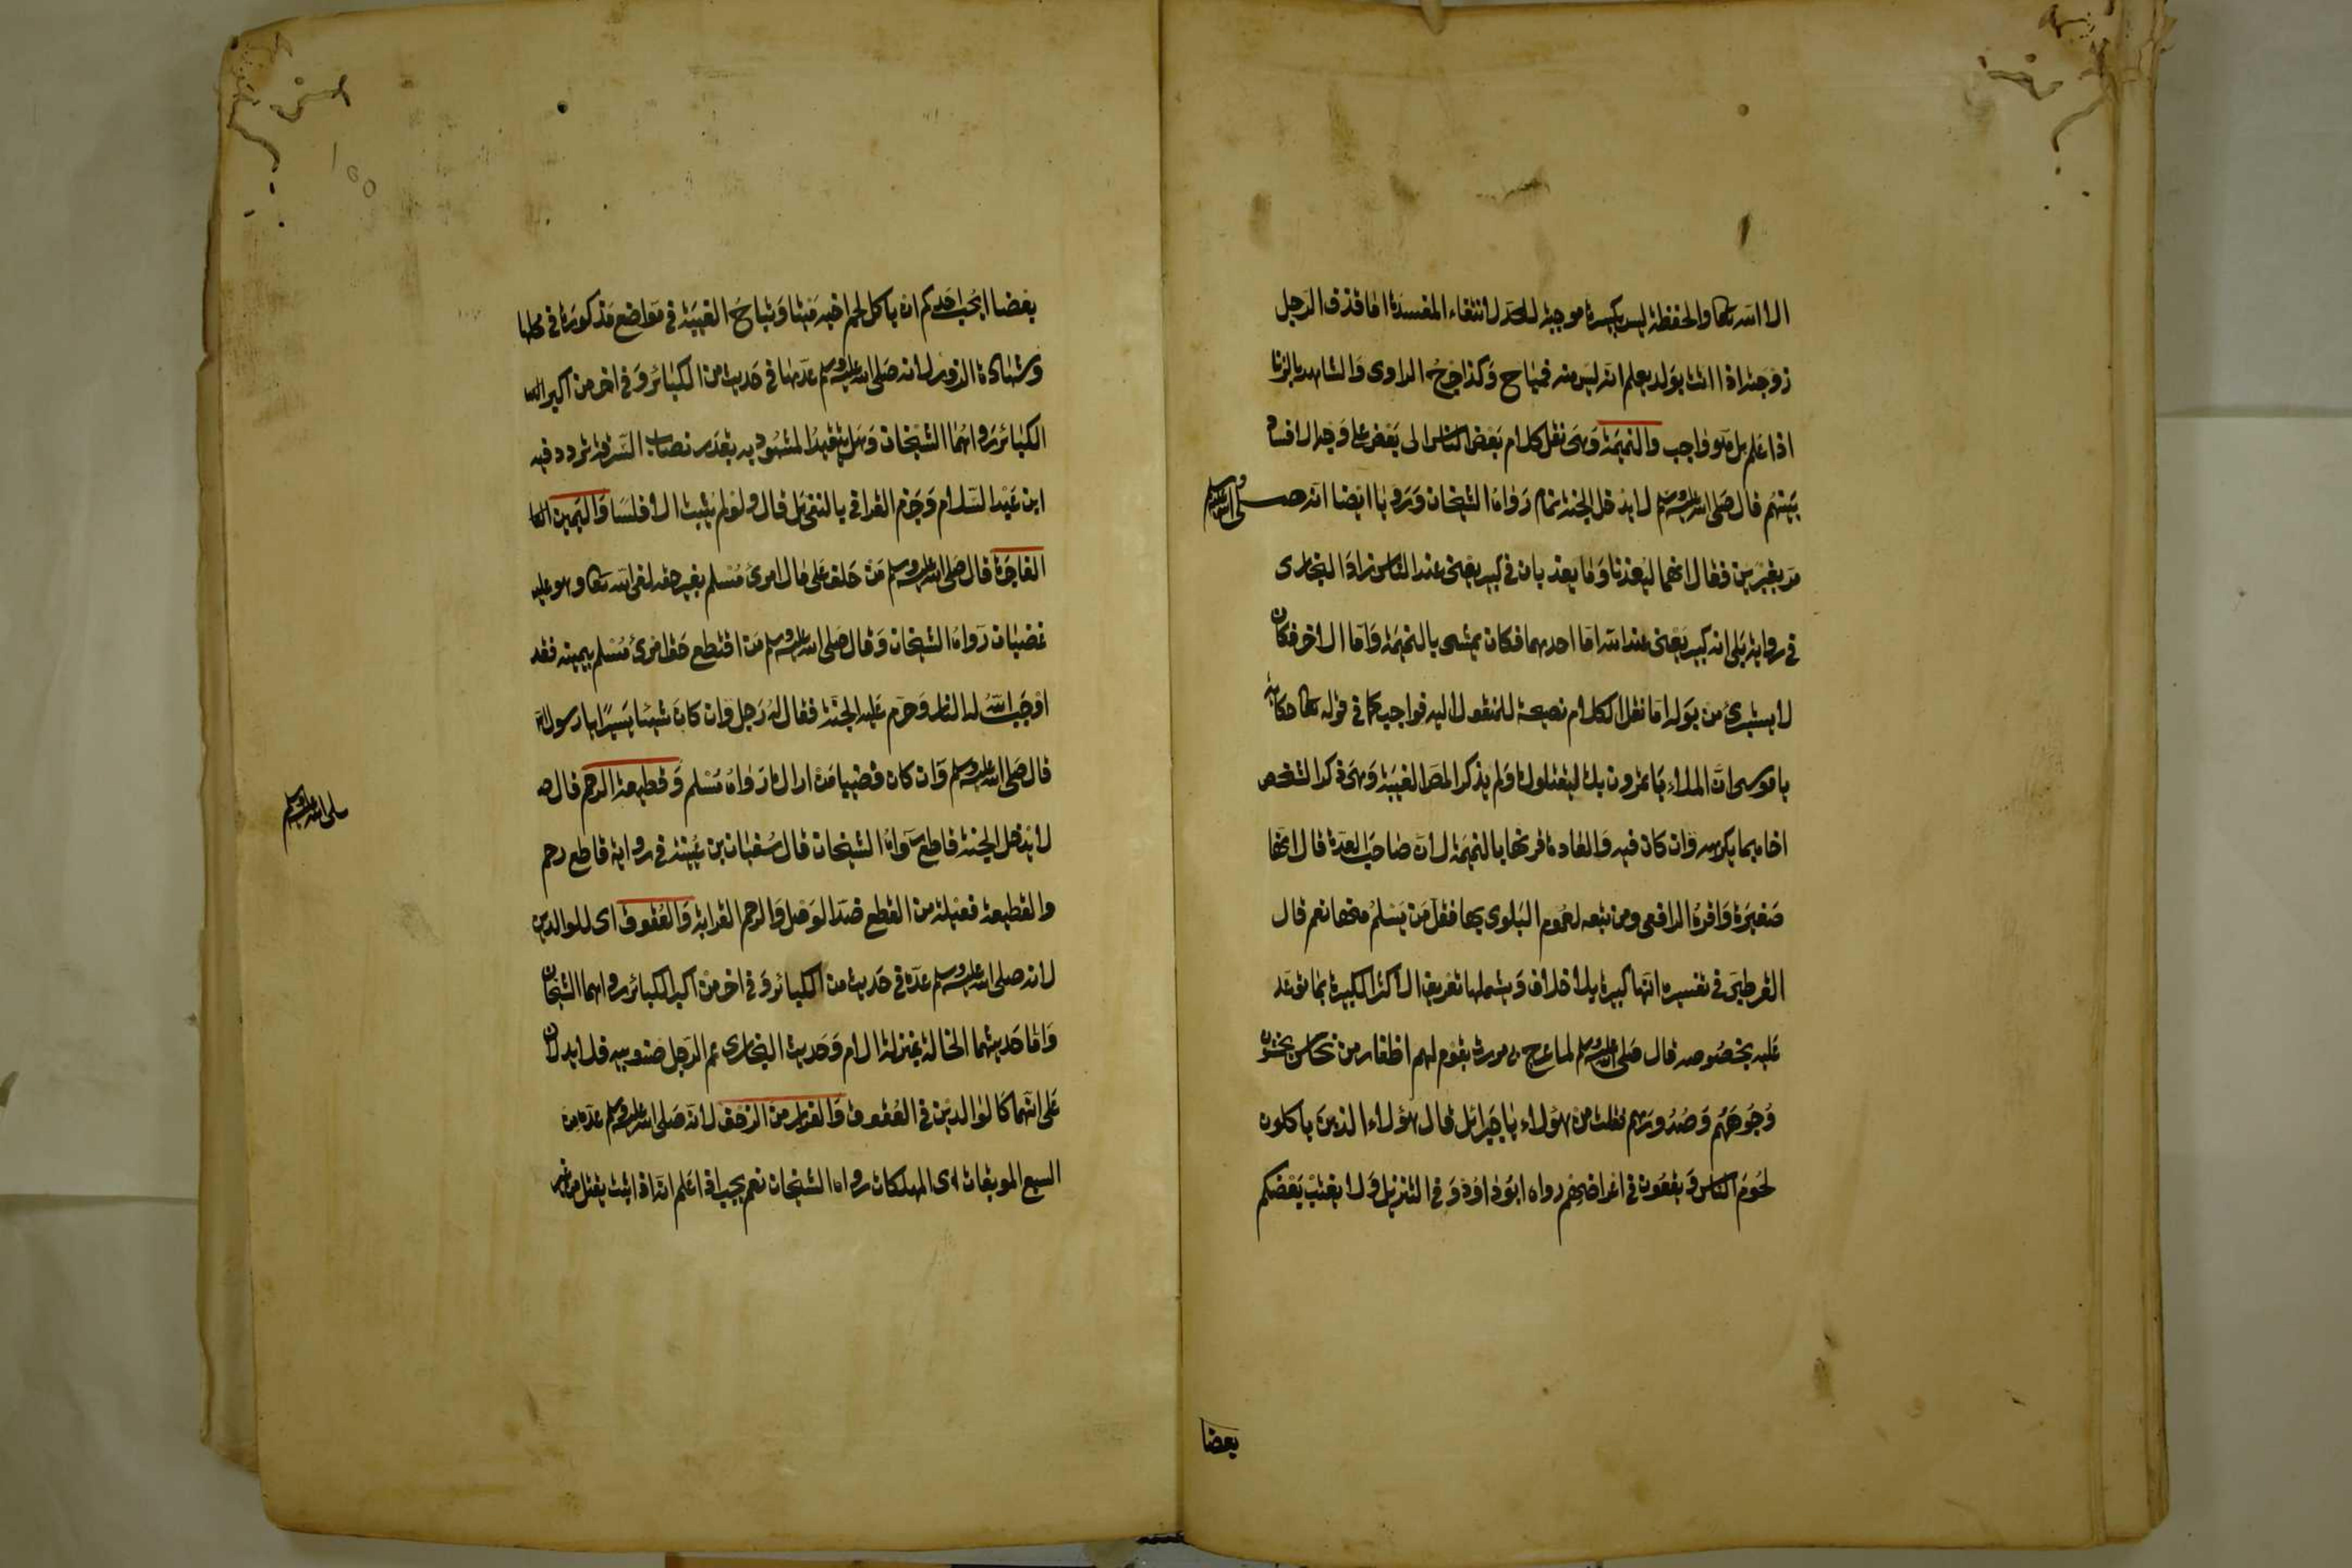 الا الله تعالى والحفظة ليس بكبيرة موجبة للحد لانتفاء المفسدة اما قذف الرجل
زوجته اذا اتت بولد يعلم انه ليس منه فمباح وكذا جرح الراوى والشاهد بالزنا
اذا علم بل هو واجب والنميمة وهى نقل كلام بعض الناس الى بعض على وجه الافساد
بينهم قال صلى الله عليه وسلم لا يدخل الجنة نمام رواه الشيخان ورويا ايضا انه صلى الله عليه وسلم
مر بقبرين فقال انهما ليعذبا وما يعذبان فى كبير يعنى عند الناس زاد البخارى
فى رواية بلى انه كبير يعنى عند الله اما احدهما فكان يمشى بالنميمة واما الاخر فكان
لا يستبرئ من بوله اما نقل الكلام نصيحة للمنقول اليه فواجب كما فى قوله تعالى حكاية
يا موسى ان الملاء يأتمرون بك ليقتلوك ولم يذكر المص الغيبة وهى ذكر الشخص
اخاه بما يكرهه وان كان فيه والعادة قرنها بالنميمة لان صاحب العدة قال انها
صغيرة واقره الرافعى ومن تبعه لعموم البلوى بها فقل من يسلم منها نعم قال
القرطبى فى تفسيره انها كبيرة بلا خلاف ويشملها تعريف الاكثر الكبيرة بما توعد
عليه بخصوصه قال صلى الله عليه وسلم لما عرج بى مررت بقوم لهم اظفار من نحاس يخمشون
وجوههم وصدورهم فقلت من هؤلاء يا جبرائل قال هؤلاء الذين ياكلون
لحوم الناس ويقعون فى اعراضهم رواه ابو داود وفى التنزيل ولا يغتب بعضكم
بعضا
بعضا ايحب احدكم ان ياكل لحم اخيه ميتا وتباح الغيبة فى مواضع مذكورة فى محلها
وشهادة الزور لانه صلى الله عليه وسلم عدها فى حديث من الكبائر وفى اخر من اكبر
الكبائر رواهما الشيخان وهل يتقيد المشهود به بقدر نصاب السرقة تردد فيه
ابن عبد السلام وجزم القرافى بالنفى بل قال ولو لم يثبت الا فلسا واليمين
الفاجرة قال صلى الله عليه وسلم من حلف على مال امرئ مسلم بغير حقه لقى الله تعالى وهو عليه
غضبان رواه الشيخان وقال صلى الله عليه وسلم من اقتطع حق امرئ مسلم بيمينه فقد
اوجب الله له النار وحرم عليه الجنة فقال له رجل وان كان شيئا يسيرا يا رسول الله
قال صلى الله عليه وسلم وان كان قضيبا من اراك رواه مسلم وقطيعة الرحم قال
صلى الله عليه وسلم
لا يدخل الجنة قاطع رواه الشيخان قال سفيان بن عيينة فى رواية قاطع رحم
والقطيعة فعيلة من القطع ضد الوصل والرحم القرابة والعقوق اى للوالدين
لانه صلى الله عليه وسلم عده فى حديث من الكبائر وفى اخر من اكبر الكبائر رواهما الشيخان
واما حديثهما الخالة بمنزلة الام وحديث البخارى عم الرجل صنو ابيه فلا يدلان
على انهما كالوالدين فى العقوق والفرار من الزحف لانه صلى الله عليه وسلم عده من
السبع الموبقات اى المهلكات رواه الشيخان نعم يجب اذا علم انه اذا ثبت يقتل من غير